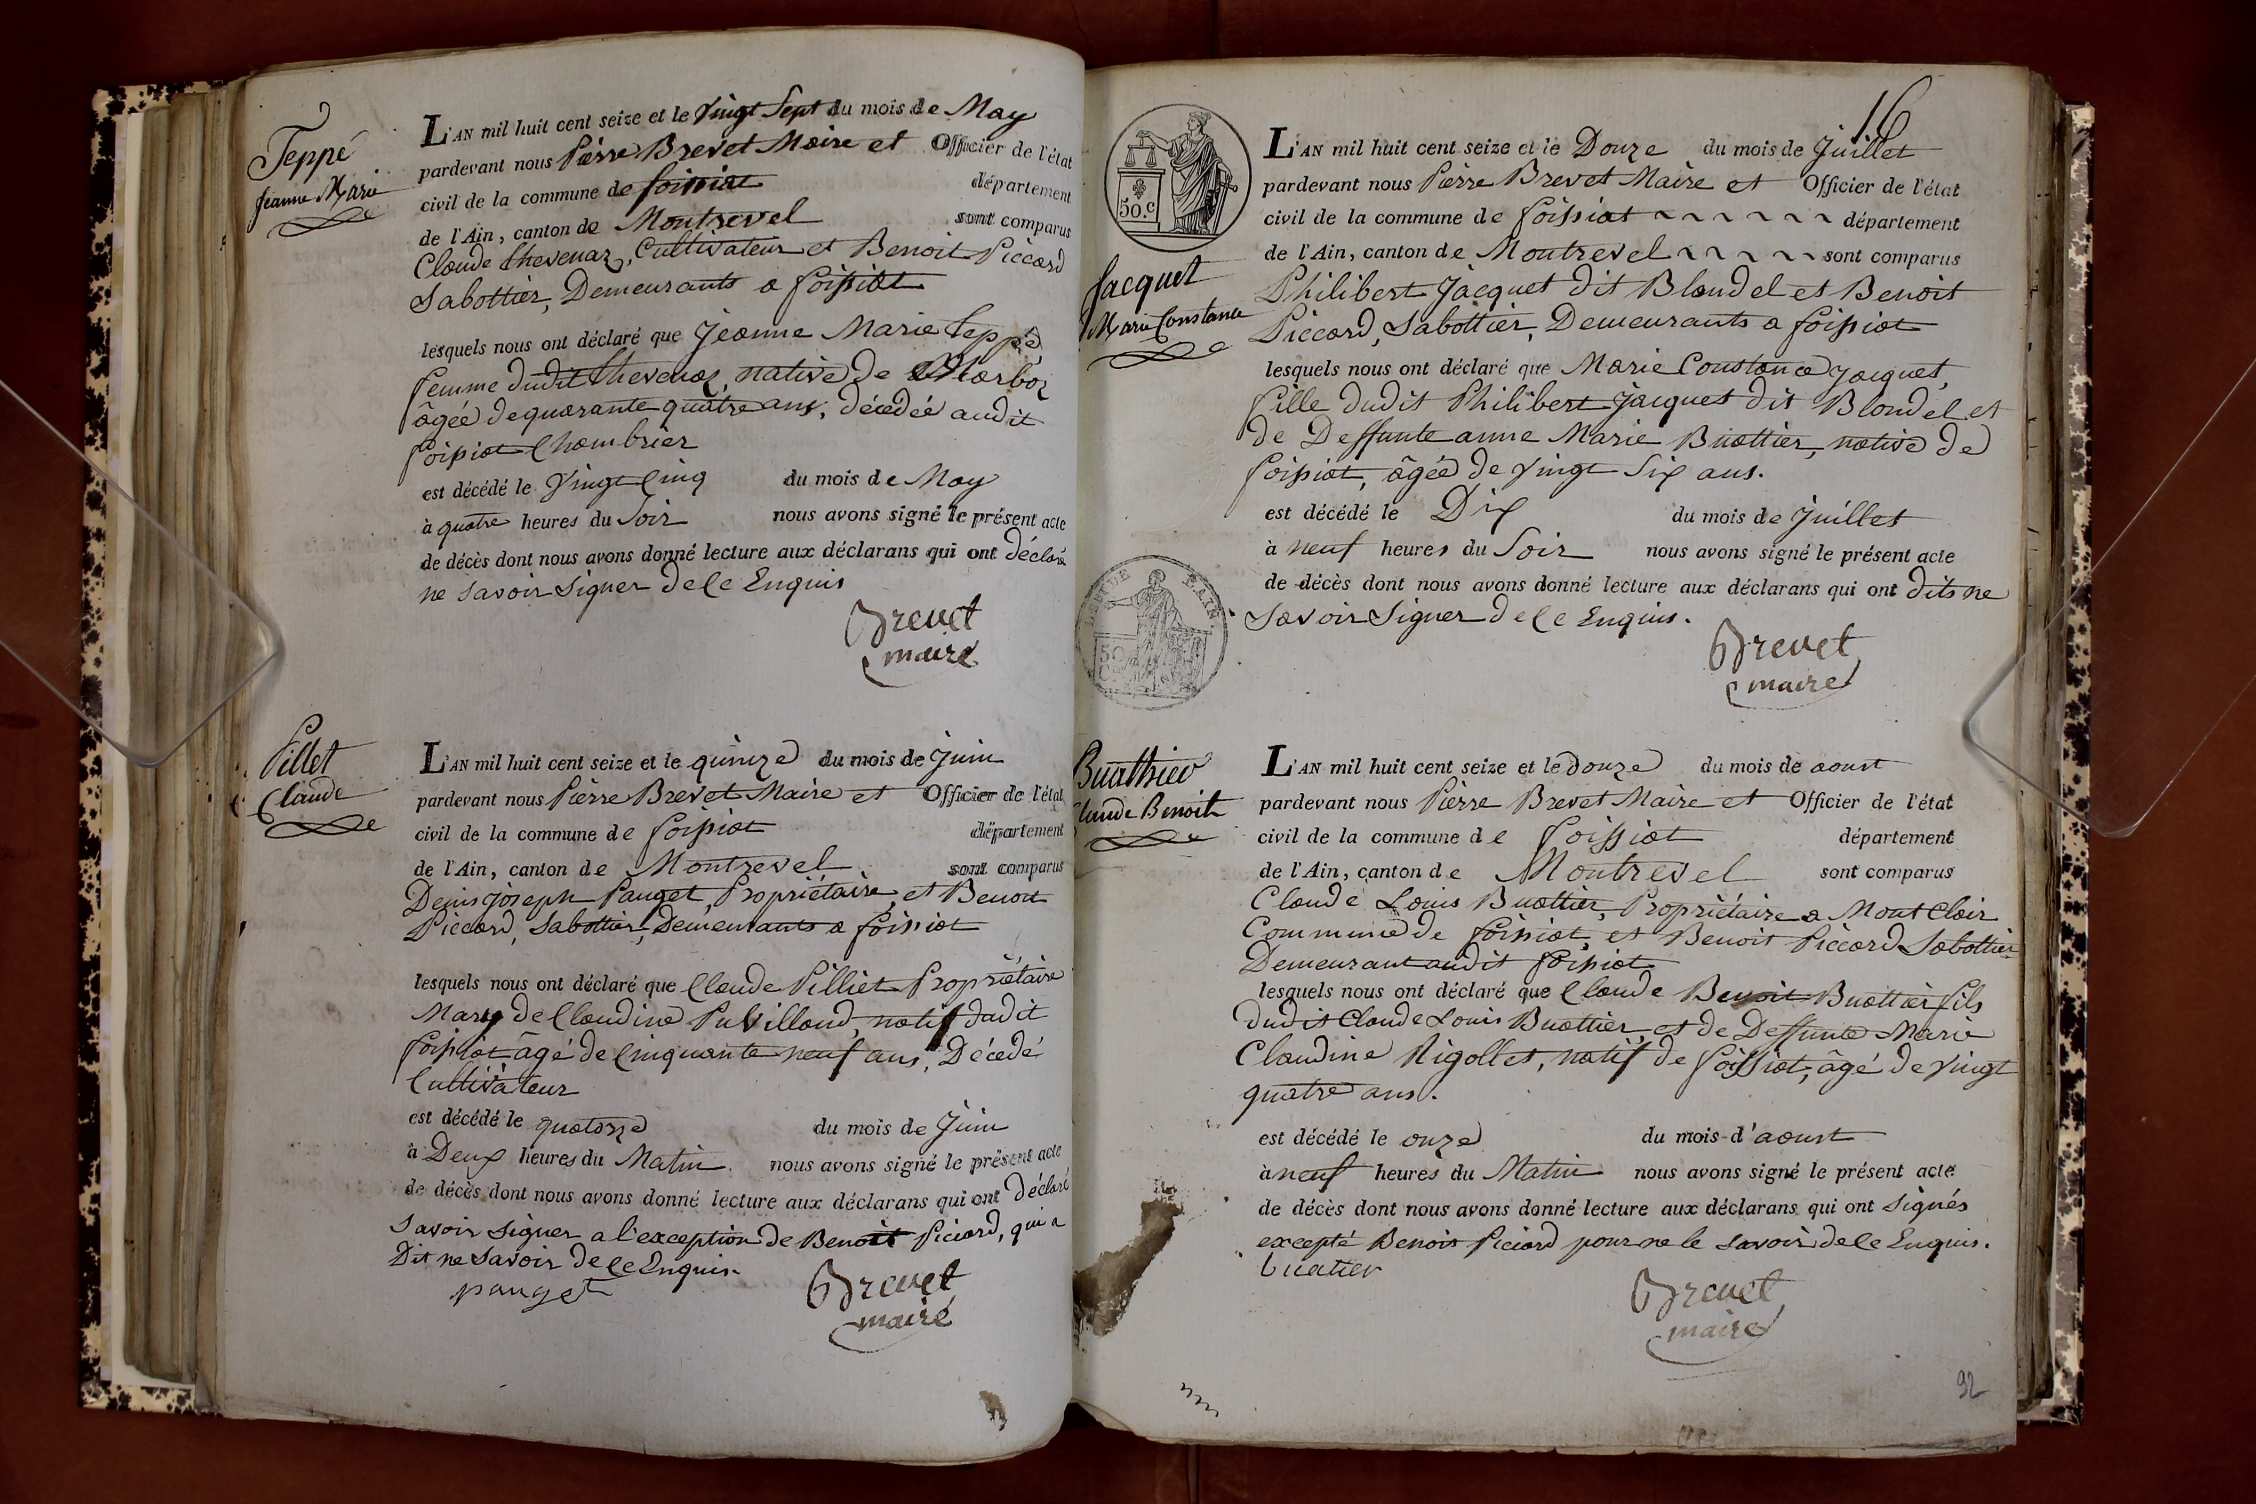 Teppé
Jeanne Marie
L'AN mil huit cent seize et le vingt Sept du mois de May
pardevant nous Pierre Brevet Maire et Officier de l'état
civil de la commune de foissiat département
de l'Ain, canton de Montrevel sont comparus
Claude thevenaz, Cultivateur et Benoit Piccard
Sabottier, Demeurants a foissiat
lesquels nous ont déclaré que Jeanne Marie teppé
femme dudit thevenaz, native de Marboz
âgée de quarante quatre ans, décedée audit
foissiat Chambrier
est décédé le vingt Cinq du mois de May
à quatre heures du Soir nous avons signé le présent acte
de décès dont nous avons donné lecture aux déclarans qui ont déclaré
ne savoir signer de ce Enquis
Brevet
maire
Pillet
Claude
L'AN mil huit cent seize et le quinze du mois de Juin
pardevant nous Pierre Brevet Maire et Officier de l'état
civil de la commune de foissiat département
de l'Ain, canton de Montrevel sont comparus
Denis joseph Pauget, Propriétaire, et Benoit
Piccard, Sabottier, Demeurants a foissiat
lesquels nous ont déclaré que Claude Pilliet Propriétaire
Mary de Claudine Puvilland, natif dudit
foissiat âgé de Cinquante neuf ans, Décedé
Cultivateur
est décédé le quatorze du mois de Juin
à Deux heures du Matin. nous avons signé le présent acte
de décès dont nous avons donné lecture aux déclarans qui ont Déclaré
savoir signer a l'exception de Benoit Piciard, qui a
Dit ne savoir de ce Enquis.
pauget
Brevet
maire
16
50.c
L'AN mil huit cent seize et le Douze du mois de Juillet
pardevant nous Pierre Brevet Maire et Officier de l'état
civil de la commune de foissiat département
de l'Ain, canton de Montrevel sont comparus
Jacquet
Marie Constance
Philibert Jacquet dit Blondel et Benoit
Piccard, Sabottier, Demeurants a foissiat
lesquels nous ont déclaré que Marie Constance jacquet,
fille dudit Philibert Jacquet dit Blondel et
de Deffunte anne Marie Buattier, native de
foissiat, âgée de vingt Six ans.
est décédé le Dix du mois de Juillet
à neuf heures du Soir nous avons signé le présent acte
de décès dont nous avons donné lecture aux déclarans qui ont dits ne
savoir signer de ce Enquis.
Brevet
maire
Buathier
Claude Benoit
L'AN mil huit cent seize et le douze du mois de aoust
pardevant nous Pierre Brevet Maire et Officier de l'état
civil de la commune de foissiat département
de l'Ain, canton de Montrevel sont comparus
Claude Louis Buattier, Propriétaire a Mont Clair
Commune de foissiat, et Benoit Piccard Sabottier
Demeurant audit foissiat
lesquels nous ont déclaré que Claude Benoit Buattier fils
dudit Claude Louis Buattier et de Deffunte Marie
Claudine Rigollet, natif de foissiat, âgé de vingt
quatre ans.
est décédé le onze du mois d'aoust
à neuf heures du Matin nous avons signé le présent acte
de décès dont nous avons donné lecture aux déclarans qui ont signés
excepté Benoit Piciard pour ne le savoir de ce Enquis.
buatier
Brevet
maire
92